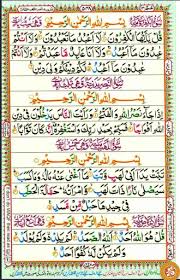 بِسْمِ اللّٰهِ الرَّحْمٰنِ الرَّحِيْمِ
قُلْ يٰۤاَيُّهَا الْكٰفِرُوْنَ لَاۤ اَعْبُدُ مَا تَعْبُدُوْنَ وَلَاۤ اَنْتُمْ
عٰبِدُوْنَ مَاۤ اَعْبُدُ وَلَاۤ اَنَا عَابِدٌ مَّا عَبَدْتُّمْ وَلَاۤ اَنْتُمْ
عٰبِدُوْنَ مَاۤ اَعْبُدُ لَكُمْ دِيْنُكُمْ وَلِيَ دِيْنِ
بِسْمِ اللّٰهِ الرَّحْمٰنِ الرَّحِيْمِ
اِذَا جَآءَ نَصْرُ اللّٰهِ وَالْفَتْحُ وَرَاَيْتَ النَّاسَ يَدْخُلُوْنَ فِيْ دِيْنِ
اللّٰهِ اَفْوَاجًا فَسَبِّحْ بِحَمْدِ رَبِّكَ وَاسْتَغْفِرْهُ اِنَّهٗ كَانَ تَوَّابًا
بِسْمِ اللّٰهِ الرَّحْمٰنِ الرَّحِيْمِ
تَبَّتْ يَدَاۤ اَبِيْ لَهَبٍ وَّتَبَّ مَاۤ اَغْنٰى عَنْهُ مَالُهٗ وَمَا كَسَبَ
سَيَصْلٰى نَارًا ذَاتَ لَهَبٍ وَّامْرَاَتُهٗ حَمَّالَةَ الْحَطَبِ
فِيْ جِيْدِهَا حَبْلٌ مِّنْ مَّسَدٍ
بِسْمِ اللّٰهِ الرَّحْمٰنِ الرَّحِيْمِ
قُلْ هُوَ اللّٰهُ اَحَدٌ اَللّٰهُ الصَّمَدُ لَمْ يَلِدْ وَلَمْ يُوْلَدْ
وَلَمْ يَكُنْ لَّهٗ كُفُوًا اَحَدٌ